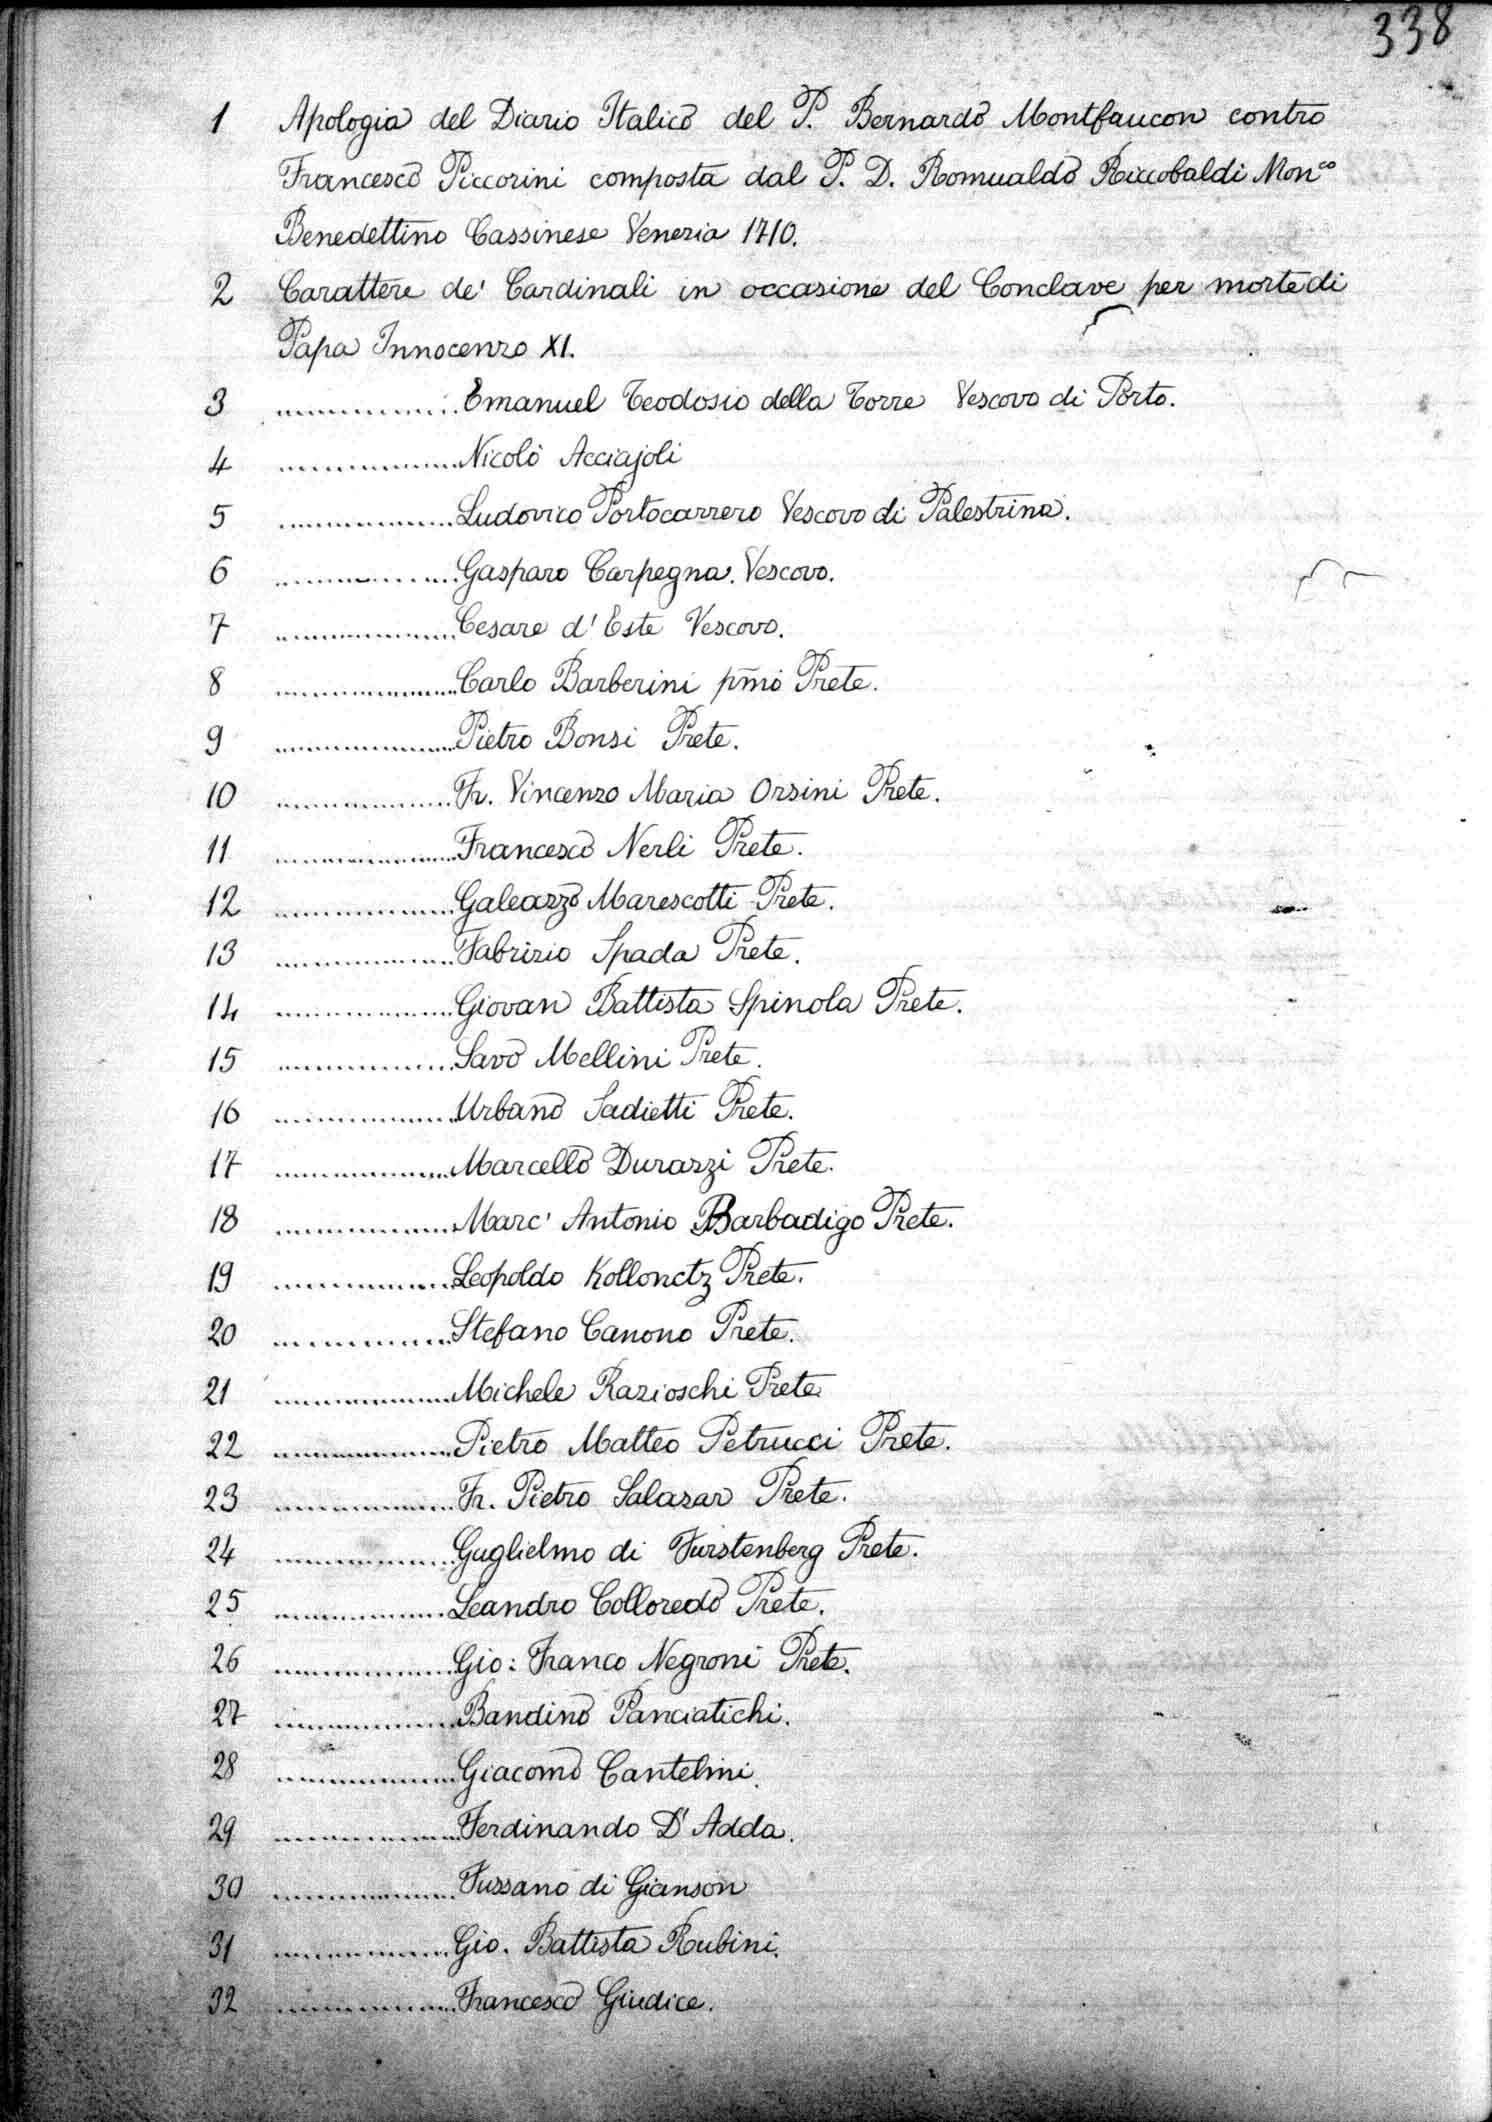 338
1 Apologia del Diario Italico del P. Bernardo Montfaucon contro
Francesco Piccorini composta dal P. D. Romualdo Riccobaldi Mon.co
Benedettino Cassinese Venezia 1710.
2 Carattere de' Cardinali in occasione del Conclave per morte di
Papa Innocenzo XI.
3 ................ Emanuel Teodosio della Torre Vescovo di Porto.
4 ................ Nicolò Acciajoli
5 ................ Ludovico Portocarrero Vescovo di Palestrina.
6 ................ Gasparo Carpegna. Vescovo.
7 ................ Cesare d'Este Vescovo.
8 ................ Carlo Barberini pm̃o Prete.
9 ................ Pietro Bonsi Prete.
10 ................ Fr. Vincenzo Maria Orsini Prete.
11 ................ Francesco Nerli Prete.
12 ................ Galeazzo Marescotti Prete.
13 ................ Fabrizio Spada Prete.
14 ................ Giovan Battista Spinola Prete.
15 ................ Savo Mellini Prete.
16 ................ Urbano Sadietti Prete.
17 ................ Marcello Durazzi Prete.
18 ................ Marc' Antonio Barbadigo Prete.
19 ................ Leopoldo Kollonctz Prete.
20 ................ Stefano Canono Prete.
21 ................ Michele Razioschi Prete
22 ................ Pietro Matteo Petrucci Prete.
23 ................ Fr. Pietro Salazar Prete.
24 ................ Guglielmo di Furstenberg Prete.
25 ................ Leandro Colloredo Prete.
26 ................ Gio: Franco Negroni Prete.
27 ................ Bandino Panciatichi.
28 ................ Giacomo Cantelmi.
29 ................ Ferdinando D'Adda.
30 ................ Fussano di Gianson
31 ................ Gio. Battista Rubini.
32 ................ Francesco Giudice.